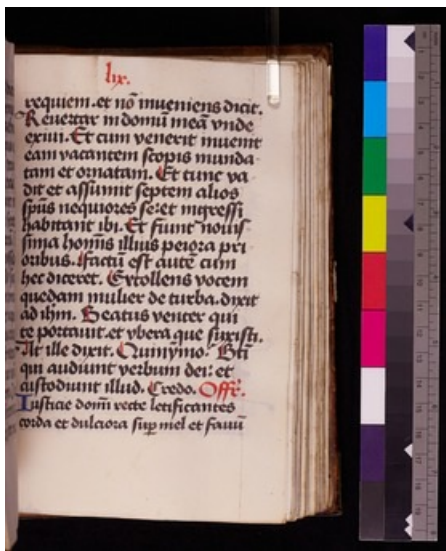 lix.
requiem. et nō inueniens dicit.
Reuertar in domū meā vnde
exiui. Et cum venerit inuenit
eam vacantem scopis munda
tam et ornatam. Et tunc va
dit et assumit septem alios
spūs nequiores se: et ingressi
habitant ibi. Et fiunt nouis
sima homīs illius peiora pri
oribus. Factū est autē cum
hec diceret. Extollens vocem
quedam mulier de turba. dixit
ad ihm. Beatus venter qui
te portauit. et vbera que suxisti.
At ille dixit. Quinȳmo. Bt̄i
qui audiunt verbum dei: et
custodiunt illud. Credo. Offr̄.
Iusticie domī recte letificantes
corda et dulciora sup mel et fauū